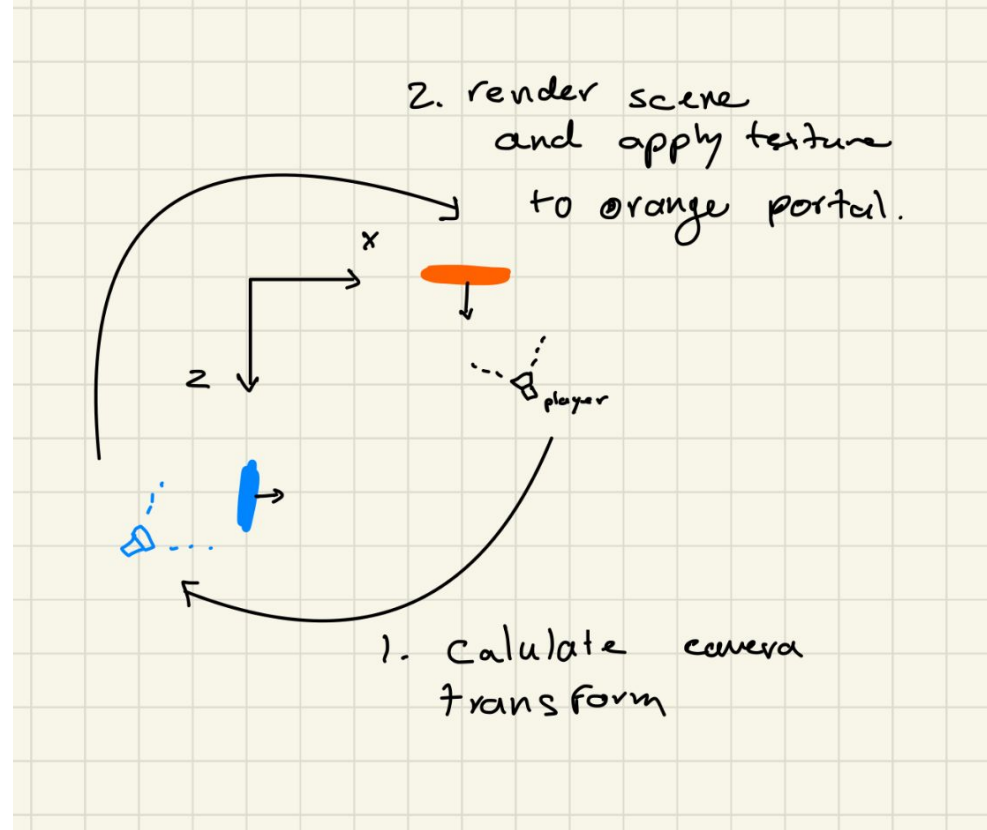 2. render scene
and apply texture
to orange portal.
x
z
player
1. calulate camera
transform